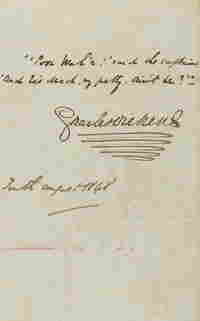 "Poor Mrs C's!" said the captain
"and his dead, my pretty, ain't he?"
Charles Dickens
Tenth August 1848